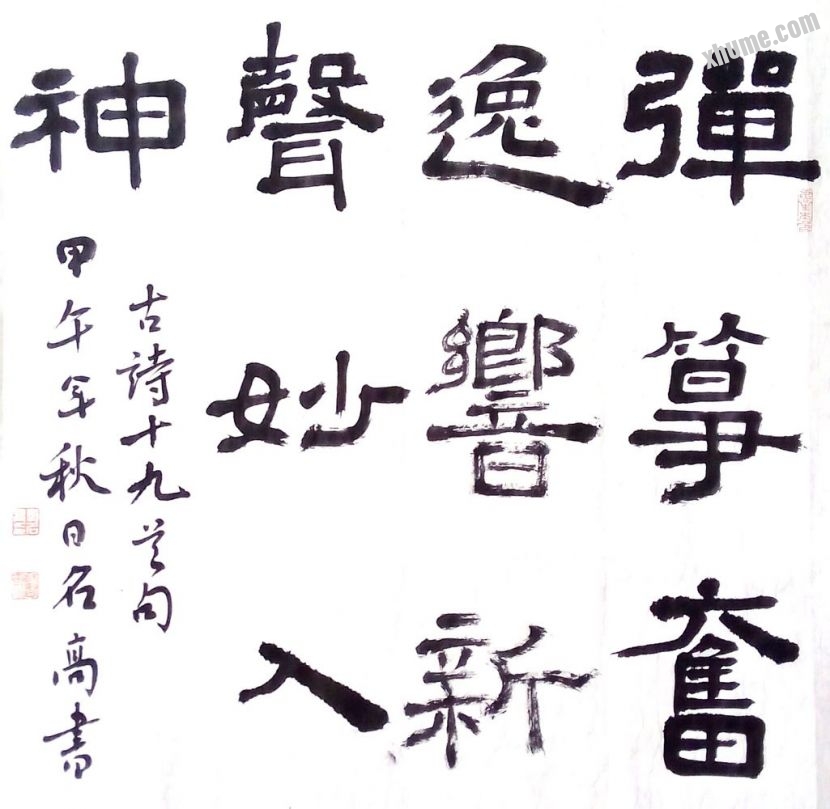 彈箏奮
逸響新
聲妙入
神
古詩十九首句
甲午年秋日名高書
xhume.com